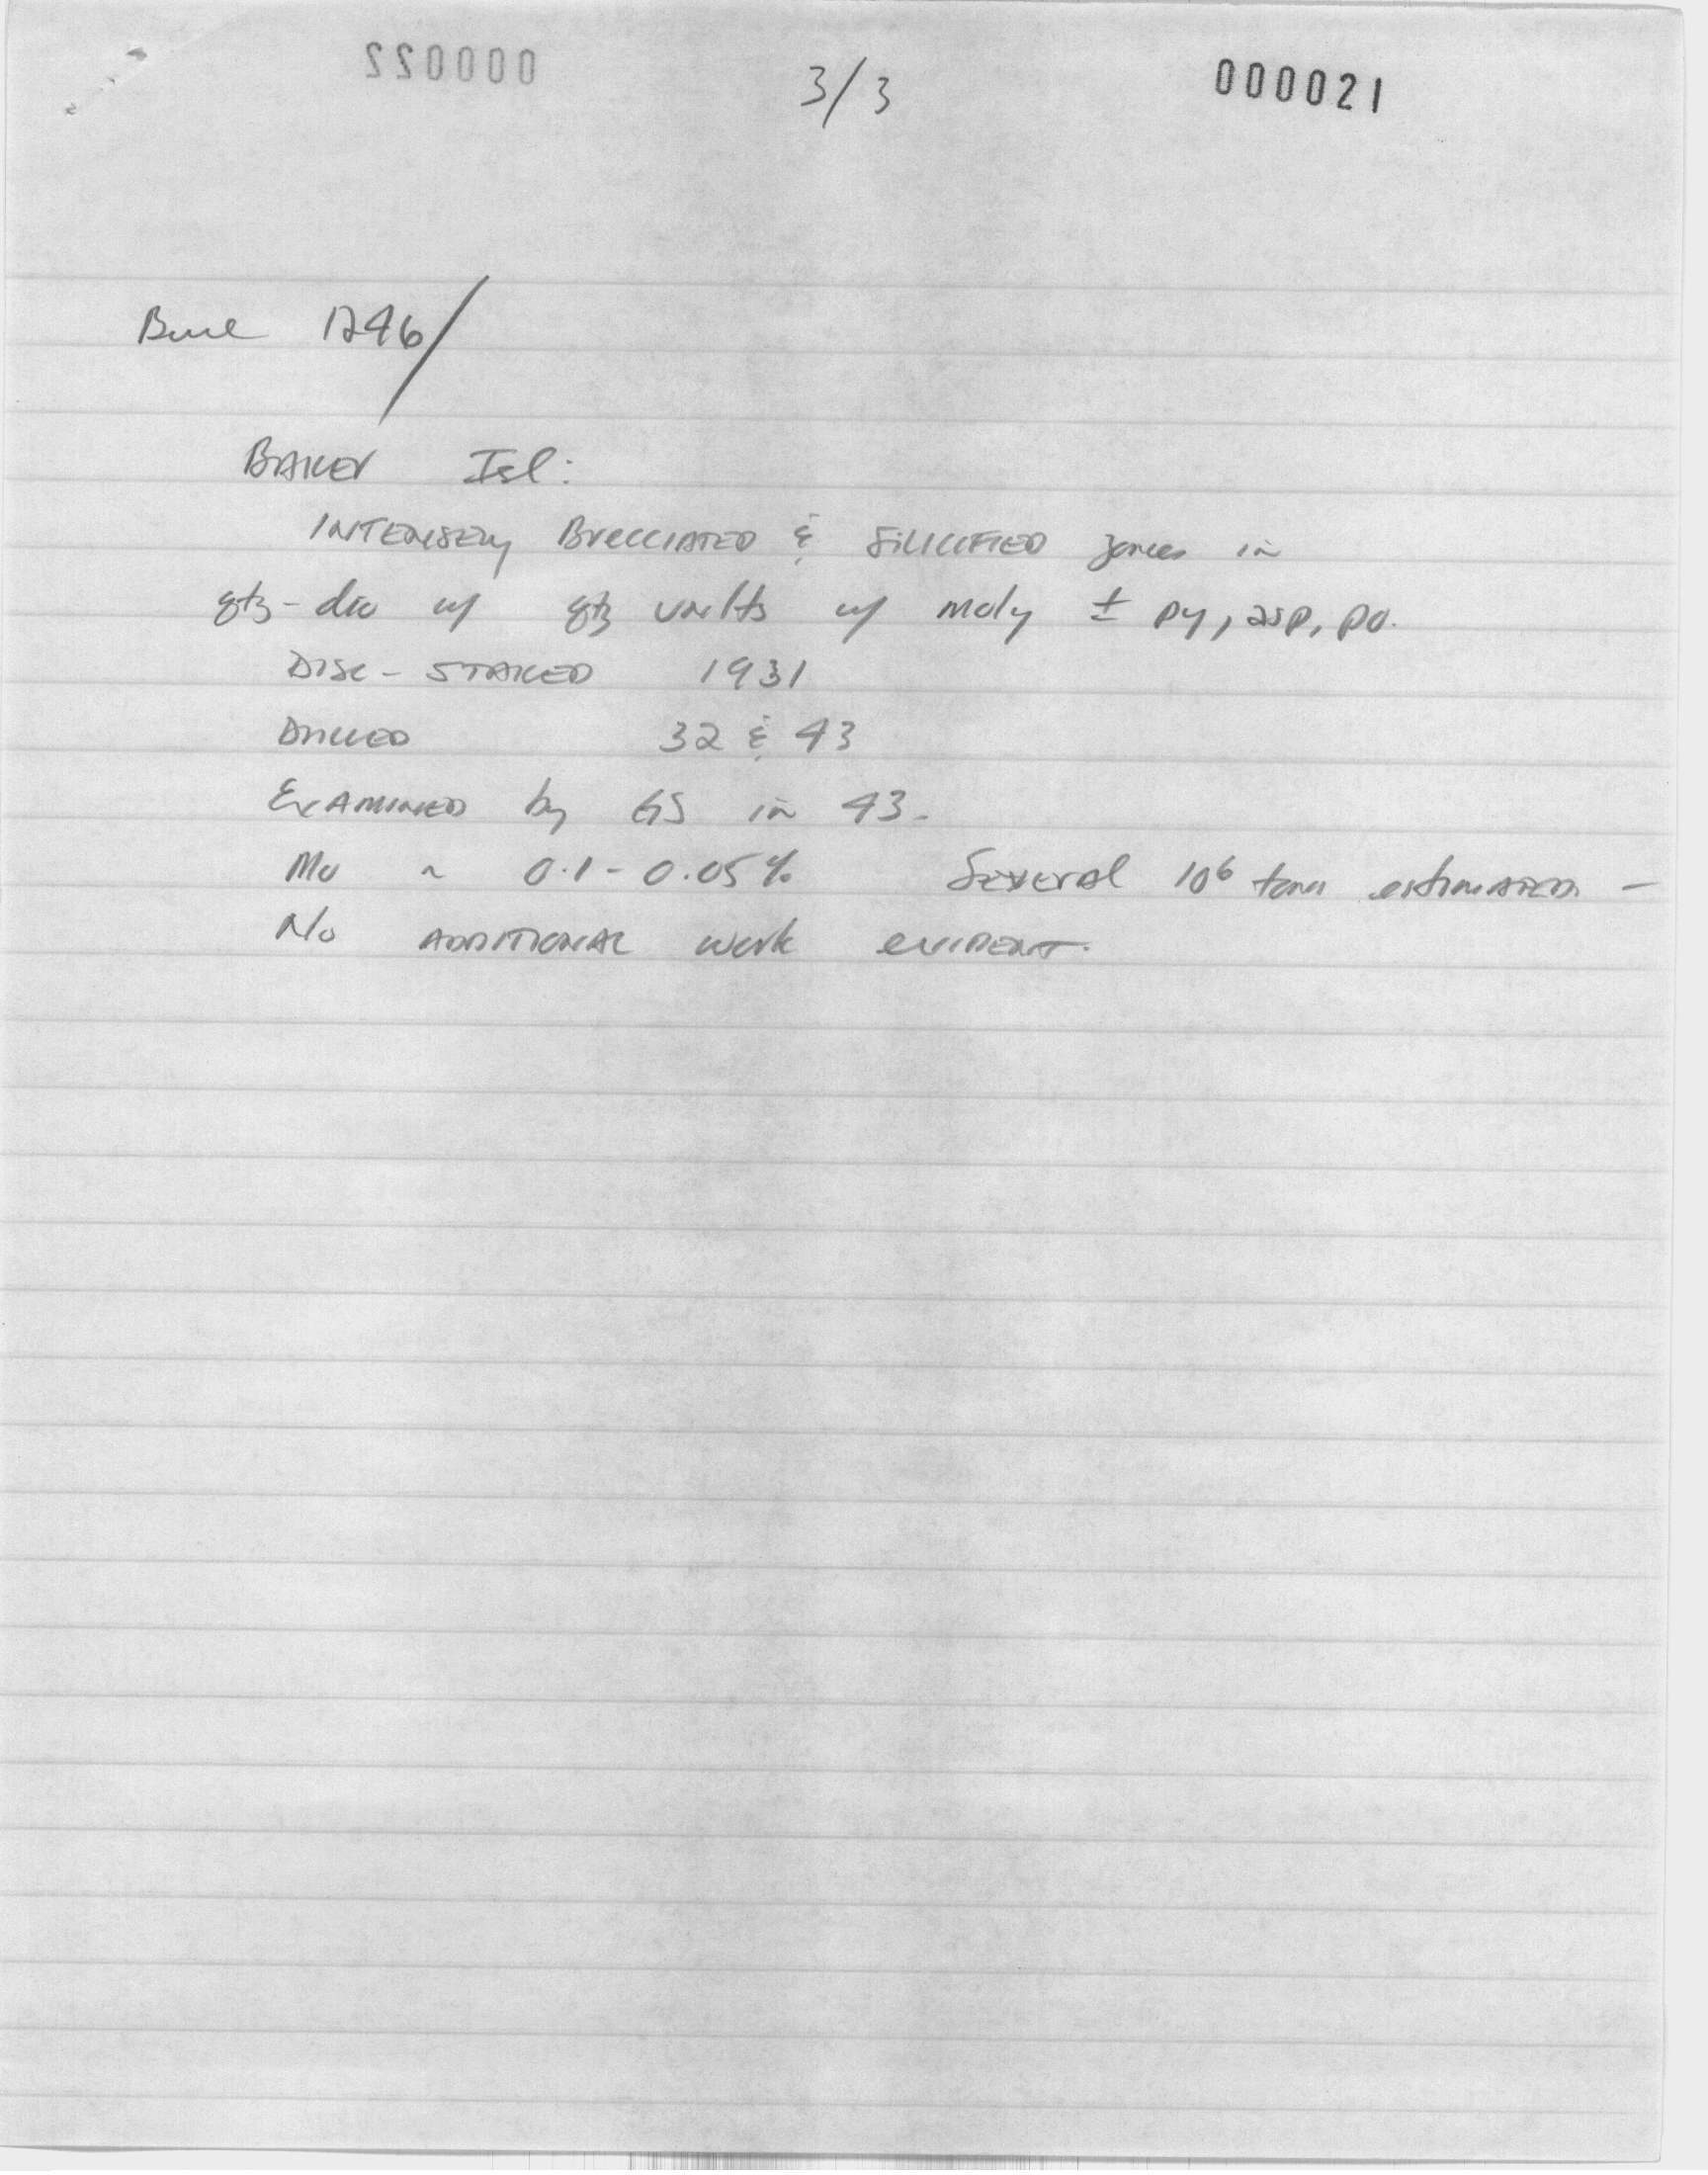 000022
3/3
000021
Bull 1246/
BAKER Isl:
INTENSELY BRECCIATED & SILICIFIED zones in
qtz-dio w/ qtz vnlts w/ moly ± py, asp, po.
DISC - STAKED 1931
Drilled 32 & 43
EXAMINED by GS in 43.
Mo ~ 0.1-0.05% Several 10⁶ tons estimated -
No ADDITIONAL work evident.